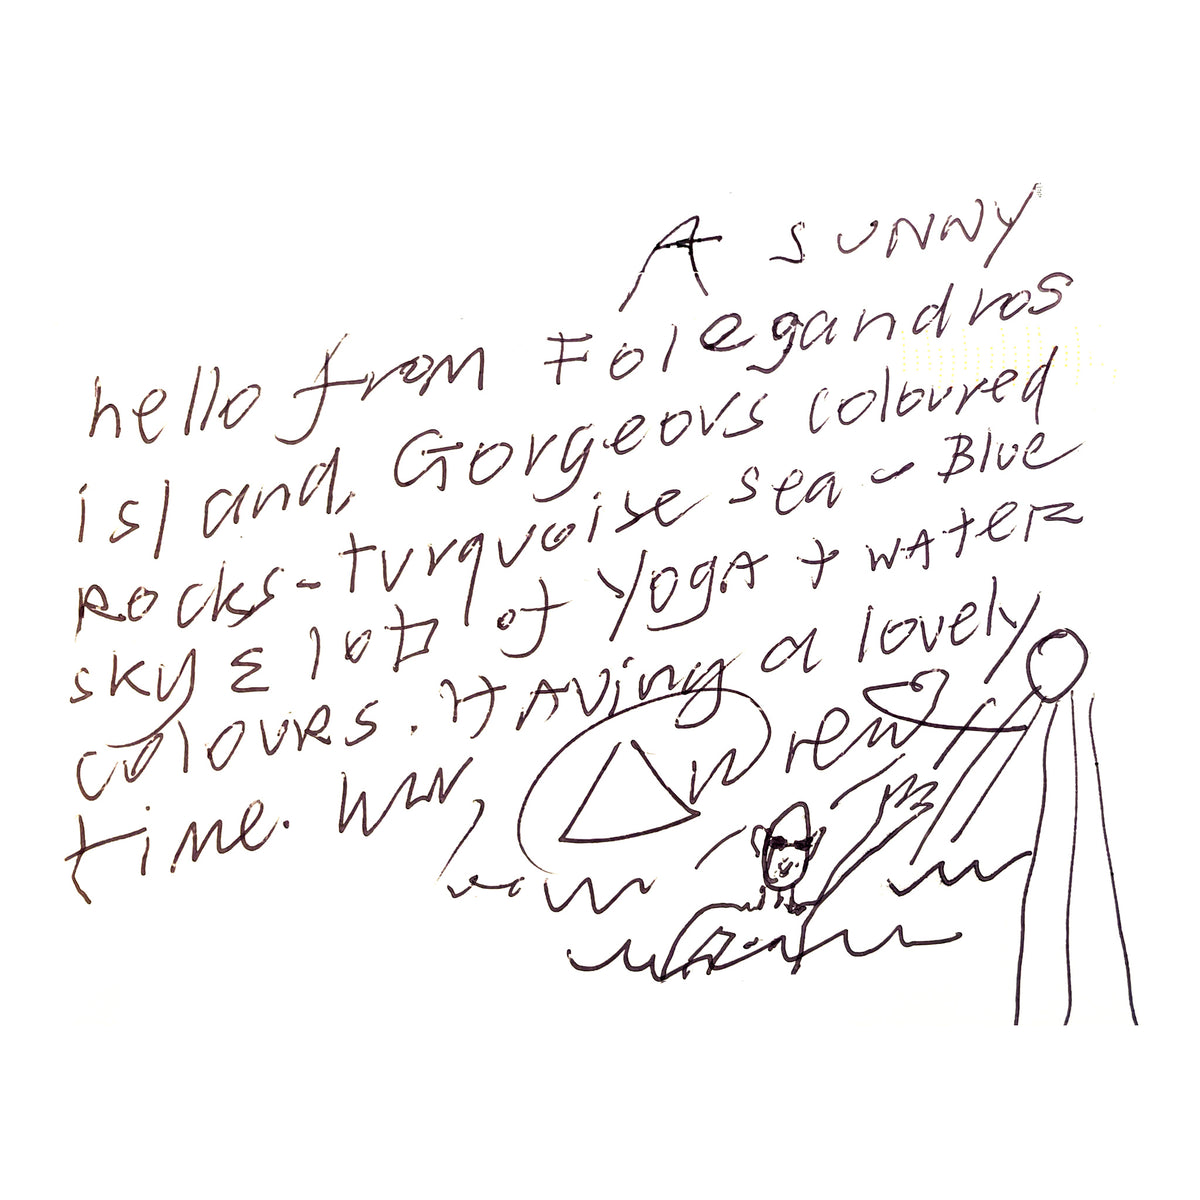 A SUNNY
hello from Folegandros
island, Gorgeous coloured
Rocks - turquoise sea - Blue
sky & lots of Yoga + WATER
colours. HAving a lovely
time.
Andrew